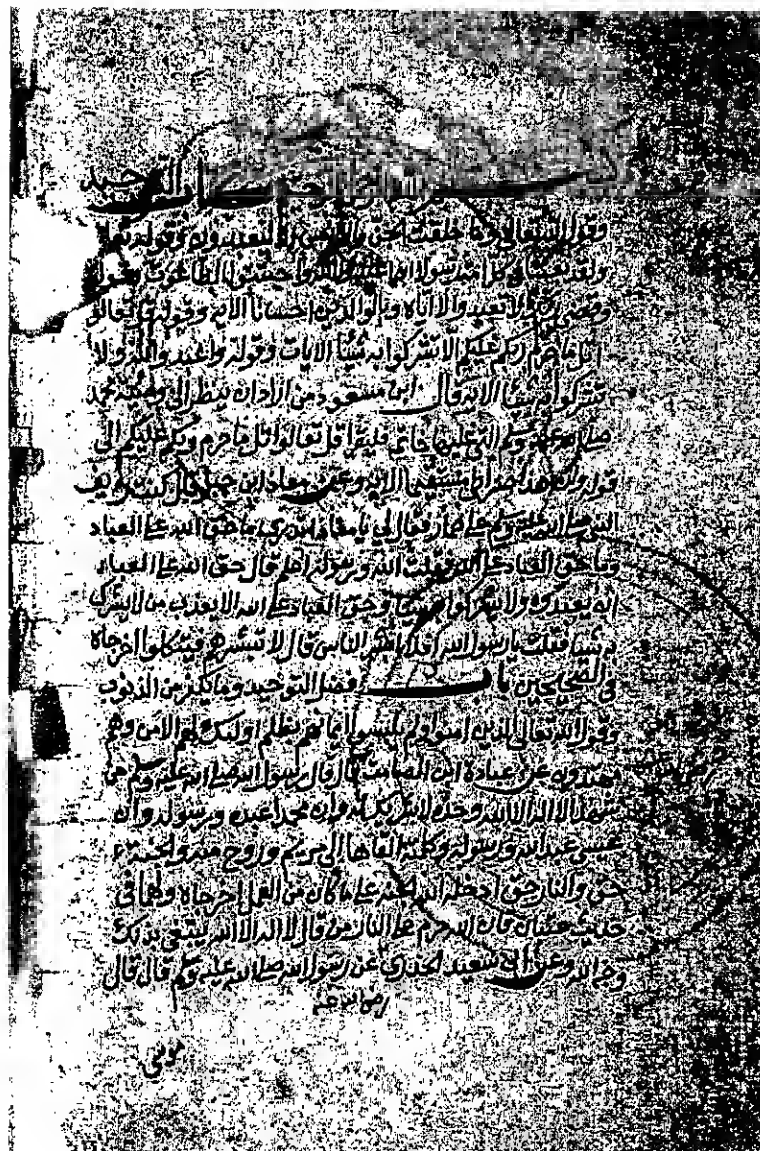 بسم الله الرحمن الرحيم
وقول الله تعالى وما خلقت الجن والانس الا ليعبدون وقوله تعالى
ولقد بعثنا في كل امة رسولا ان اعبدوا الله واجتنبوا الطاغوت
وقضى ربك الا تعبدوا الا اياه وبالوالدين احسانا الايه وقوله قل تعالوا
اتل ما حرم ربكم عليكم الا تشركوا به شيئا الايات وقوله واعبدوا الله ولا
تشركوا به شيئا الايه قال ابن مسعود من اراد ان ينظر الى وصية محمد
صلى الله عليه وسلم التي عليها خاتمه فليقرا قل تعالوا اتل ما حرم ربكم عليكم الى
قوله وان هذا صراطي مستقيما الايه وعن معاذ ابن جبل قال كنت رديف
النبي صلى الله عليه وسلم على حمار فقال لي يا معاذ اتدري ما حق الله على العباد
وما حق العباد على الله فقلت الله ورسوله اعلم قال حق الله على العباد
ان يعبدوه ولا يشركوا به شيئا وحق العباد على الله الا يعذب من لا يشرك
به شيئا فقلت يا رسول الله افلا ابشر الناس قال لا تبشرهم فيتكلوا اخرجاه
في الصحيحين باب فضل التوحيد وما يكفر من الذنوب
وقول الله تعالى الذين امنوا ولم يلبسوا ايمانهم بظلم اولئك لهم الامن وهم
مهتدون عن عبادة ابن الصامت قال قال رسول الله صلى الله عليه وسلم من
شهد ان لا اله الا الله وحده لا شريك له وان محمدا عبده ورسوله وان
عيسى عبد الله ورسوله وكلمته القاها الى مريم وروح منه والجنة
حق والنار حق ادخله الله الجنة على ما كان من العمل اخرجاه ولهما في
حديث عتبان فان الله حرم على النار من قال لا اله الا الله يبتغي بذلك
وجه الله وعن ابي سعيد الخدري عن رسول الله صلى الله عليه وسلم قال قال
رضي الله عنه
موسى